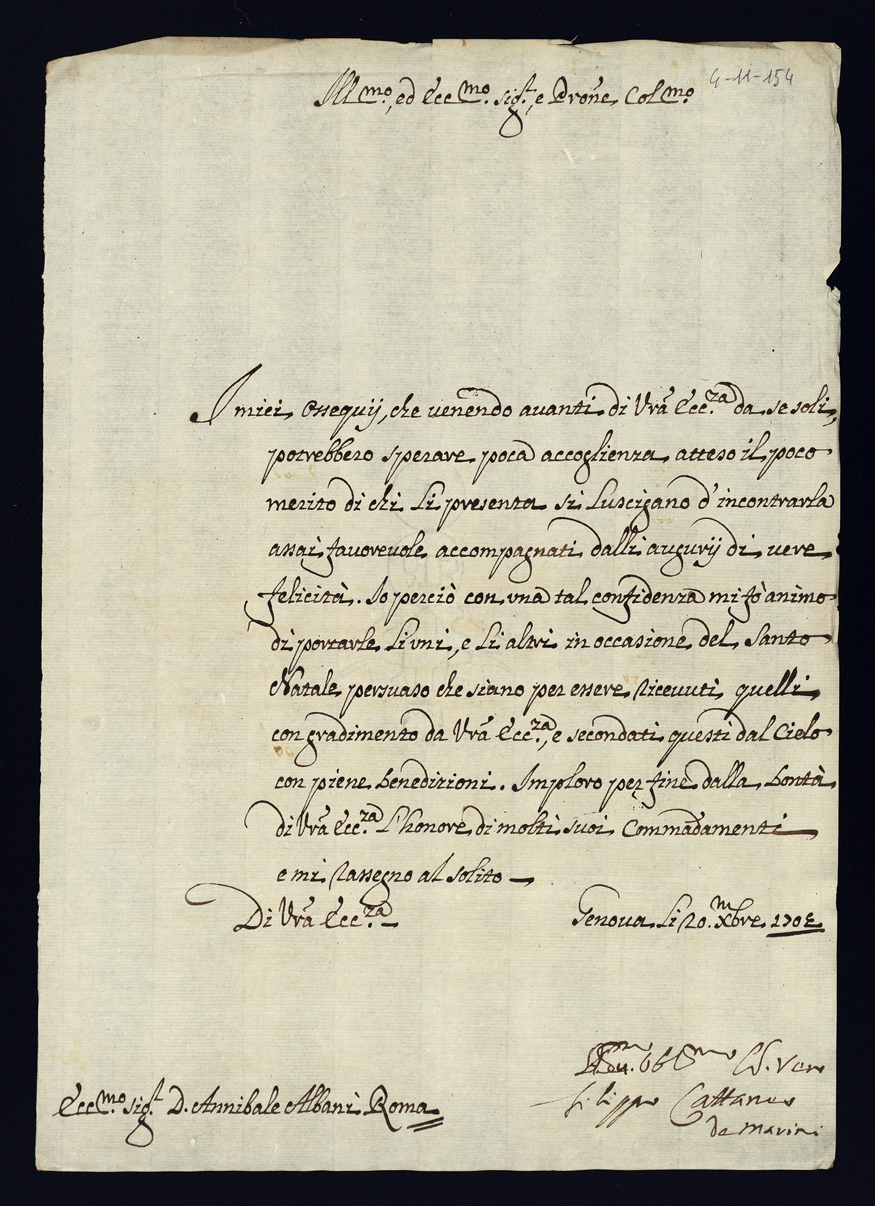 4-11-154
Ill.mo, ed Ecc.mo Sig.r, e Prone Col.mo
I miei Ossequij, che venendo avanti di Vrã Ecc.za da se soli,
potrebbero sperare poca accoglienza, atteso il poco
merito di chi Li presenta si Luscigano d'incontrarla
assai favorevole accompagnati dalli augurij di vere
felicità. Io perciò con una tal confidenza mi fò animo
di portarle Li uni, e Li altri in occasione del Santo
Natale, persuaso che siano per essere ricevuti quelli
con gradimento da Vrã Ecc.za, e secondati questi dal Cielo
con piene benedizioni. Imploro per fine dalla bontà
di Vrã Ecc.za L'honore di molti suoi Commãdamenti
e mi rassegno al solito
Di Vrã Ecc.za
Genova Li 20. Xbre
Ecc.mo Sig.r D. Annibale Albani Roma
Filippo Cattaneo
de Marini